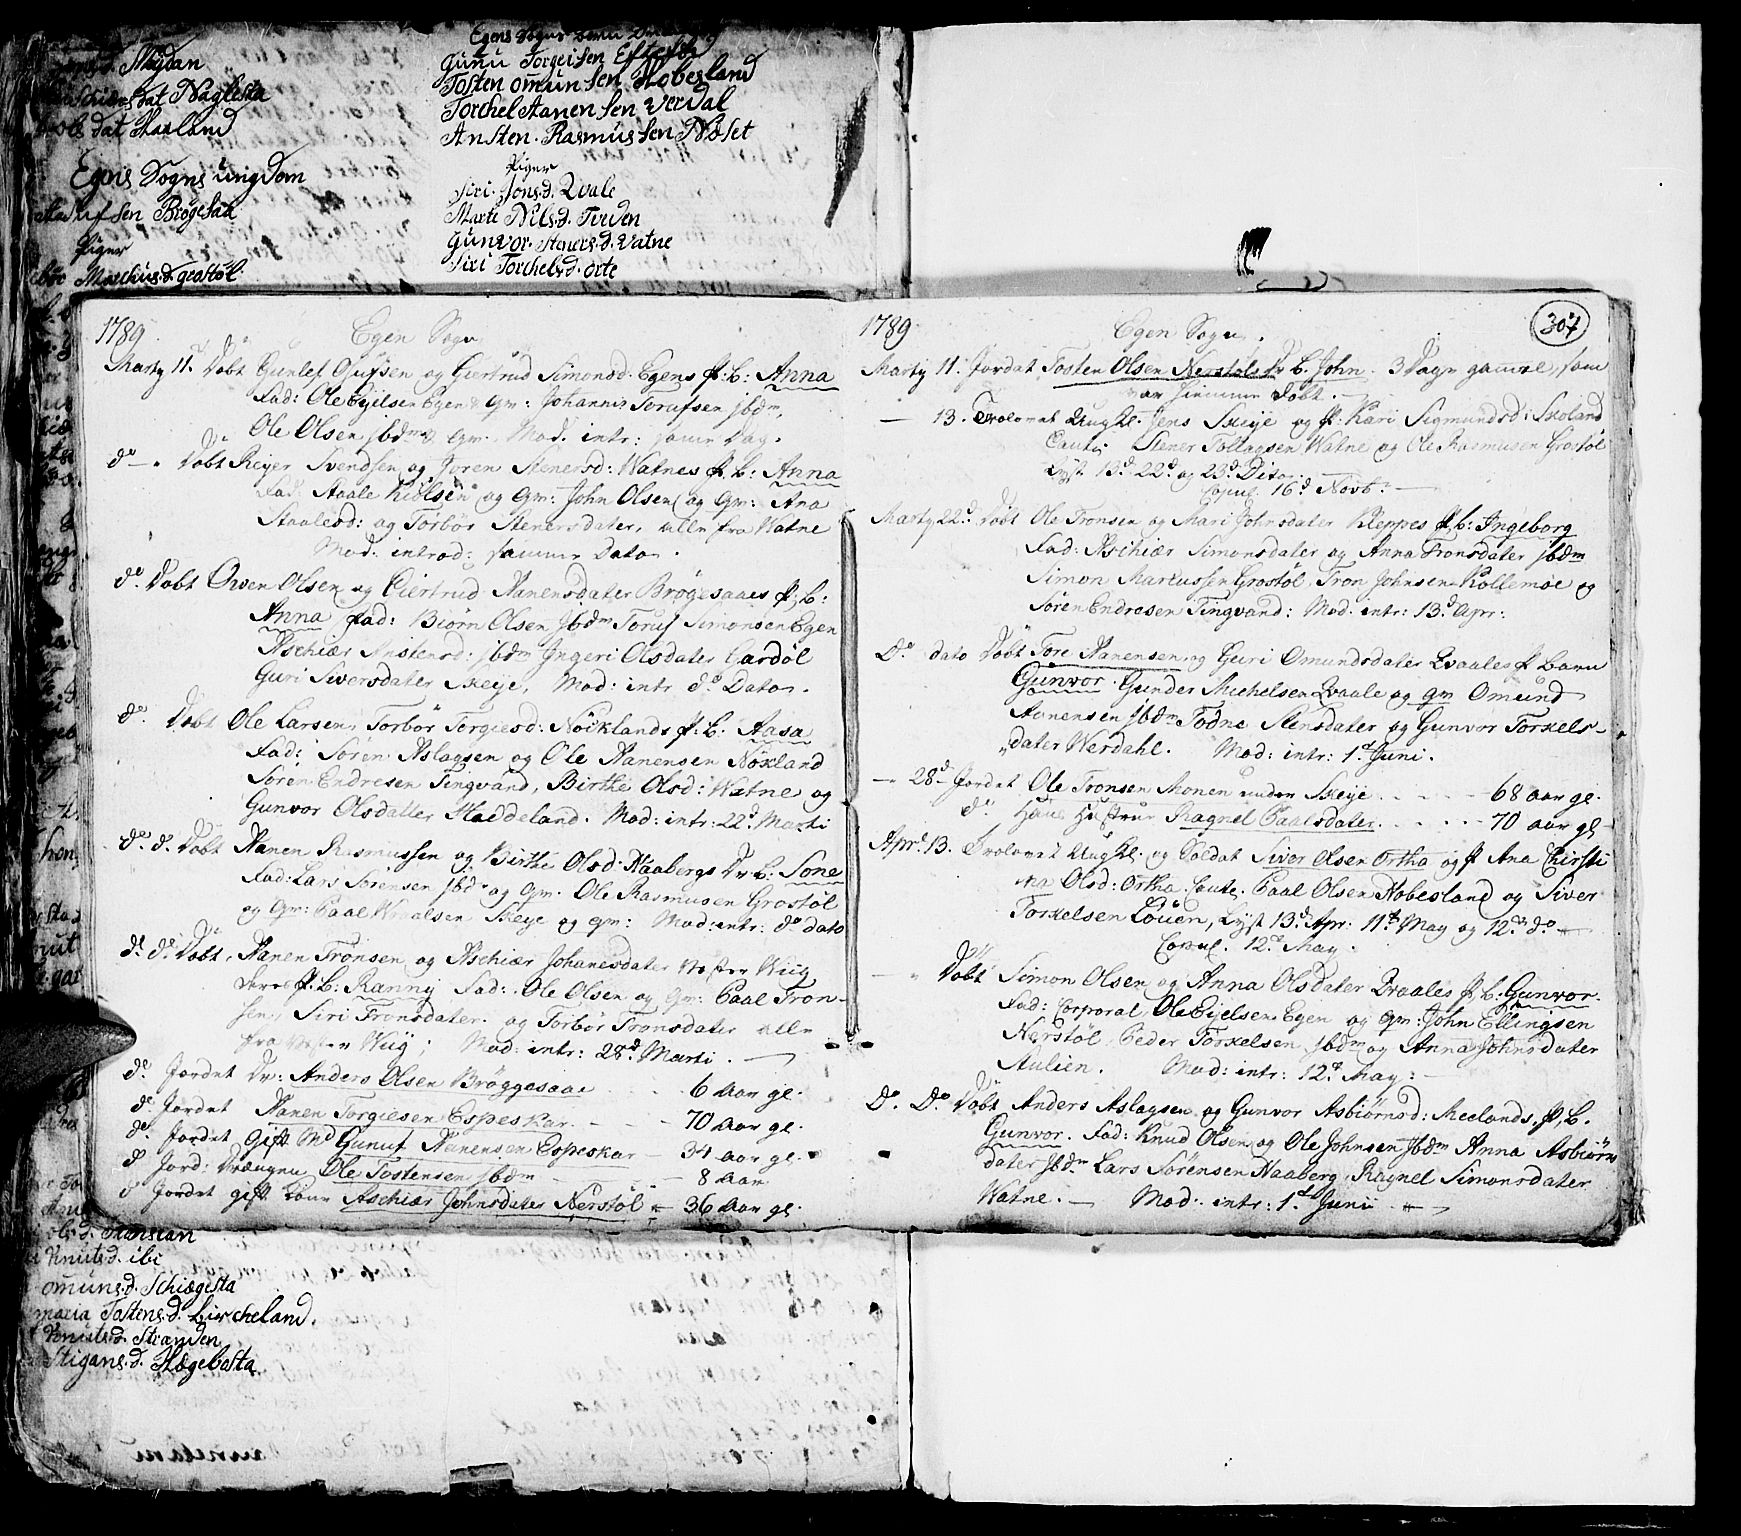 Egens Sogns
Gunu Torgeisen Eftestøl
Tosten omunsen Hobesland
Torchel Aanensen Verdal
Ansten Rasmussen Nøset
Piger
Siri Jons.d. Qvale
Marte Nils.d. Tveden
Gunvor Steners.d. Vatne
Siri Torchels.d. orte
dat Naglesta
dat Haaland
Egens Sogns ungdom
Brøgesaa
Piger
Maschius.d. grostøl
1789 Egen Sogn
Marty 11. Døbt Gunlef Gufsen og Giertrud Simonsd. Egens Æ: b: Anna
Fad: Ole Eyelsen Egen og Qv: Johannis Torufsen jbdm
Ole Olsen jbdm og Qv. Mod. intr: samme Dag.
do — . Døbt Reyer Svendsen og Joren Stenersd: Watnes Æ: b: Anna
Fad. Staale Kiølsen og Qv: John Olsen og Qv: Ana
Staalesd: og Torbør Stenersdater, alle fra Watne
Mod: introd: samme Dato.
do Døbt Owen Olsen og Giertrud Aanensdater Brøgesaaes Æ, b:
Anna Fad: Biørn Olsen jbdm Toruf Simonsen Egen
Aschiær Anstensd: jbdm Ingeri Olsdater Gardøl
Guri Siversdater Skeye, Mod: intr do Dato.
do. Døbt Ole Larsen, Torbør Tergiesd: Nöcklands Æ: b: Aasa
Fad: Søren Aslagsen og Ole Aanensen Nöxland
Søren Endresen Tingvand, Birthe Olsd: Watne og
Gunvor Olsdatter Haddeland. Mod: intr: 22d Marti
do. d. Døbt Aanen Rasmussen og Birthe Olsd. Naabergs Dr. b: Sone
Fad: Lars Sørensen jbdm og Qv. Ole Rasmusen Grostøl
og Qv: Paal Skeye og qv: Mod: intr: do dato
do. do: Døbt, Aanen Trönsen og Aschiær Johanesdater Vesten Wiig
deres Æ. b: Ranny Fad: Ole Olsen og Qv: Paal Tron-
sen, Siri Tronsdater. og Torbör Tronsdater alle
fra Vesten Wiig; Mod: intr: 28d Marti.
do. Jordet Dr: Anders Olsen Bröggesaae 6 Aar gl.
do. Jordet Aanen Torgiesen Espeskar. 70 Aar gl.
do. Jordet gift Md Gunuf Aanensen Espeskar — 34 Aar gl.
d Jord: Drængen Ole Tostensen jbdm — 8 Aar
d Jordet gift Kone Aschiær Johnsdater Nerstöl 36 Aar gl.
1789 Egen Sogn. 307
Marty 11. Jordat Tosten Olsen Nerstöls Dr b. John. 3 Dage gammel, som
var hiemme Døbt.
— 13. Trolovet Ungkl. Jens Skeye og P. Kari Sigmundsd: Skoland
Caut: Stener Tollagsen Watne og Ole Rasmusen Grostøl
Lyst 13d 22d og 23d Dito.
Copul 16d Novb:
Marty 22d Døbt Ole Tronsen og Mari Johnsdater Kleppes Æ. b: Ingeborg
Fad: Aschiær Simonsdater og Anna Tronsdater jbdm
Simon Markussen Grostøl, Tron Johnsen Kollemoe og
Søren Endresen Tingvand: Mod: intr: 13d Apr:
Do dato Döbt Tore Aanensen og Guri Omundsdater Qvaales Æ barn
Gunvor. Gunder Michelsen Qvaale og qv Omund
Aanensen jbdm Todne Stensdater og Gunvor Torkels-
dater Werdahl. Mod: intr: 1d Juni.
— 28d Jordet Ole Tronsen Monen under Skeye 68 aar gl.
do Hans Hustrue Ragnel Paalsdater. 70 aar gl
Apr. 13. Trolovet Ungkl. og Soldat Siver Olsen Ortha og P Ana Chirsti
na Olsd: Ortha. Caute. Paal Olsen Hobesland og Siver
Torkelsen Löuen, Lyst 13d Apr: 11d May og 12d do
Copul. 12d May.
— . Döbt Simon Olsen og Anna Olsdater Qvaales Æ, b. Gunvor.
Fad: Corporal Ole Eyelsen Egen og Qv: John Ellingsen
Nerstöl, Peder Torkelsen jbdm og Anna Johnsdater
Aulien. Mod: intr: 12d May:
Do. Do. Döbt Anders Aslagsen og Gunvor Asbiørnsd: Meelands, Æ, b.
Gunvor. Fad: Knud Olsen og Ole Johnsen jbdm Anna Asbiørns
dater jbdm Lars Sørensen Naaberg, Ragnel Simonsdater
Watne. — Mod: intr: 1d Junii
Knuts.d. ibi
omuns.d. Schiægesta
maria Tostens.d. Lircheland.
Knuts.d. Stranden
Stigans.d. Hægebosta